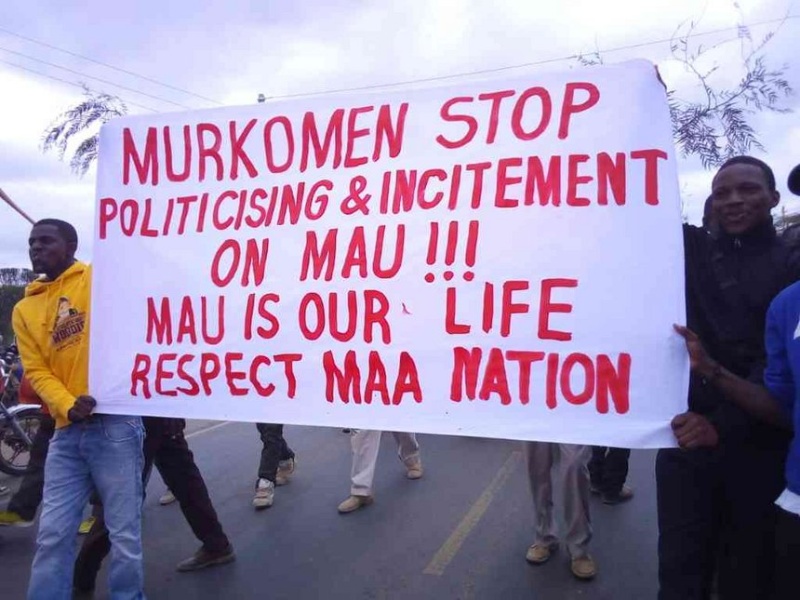 MURKOMEN STOP
POLITICISING & INCITEMENT
ON MAU !!!
MAU IS OUR LIFE
RESPECT MAA NATION